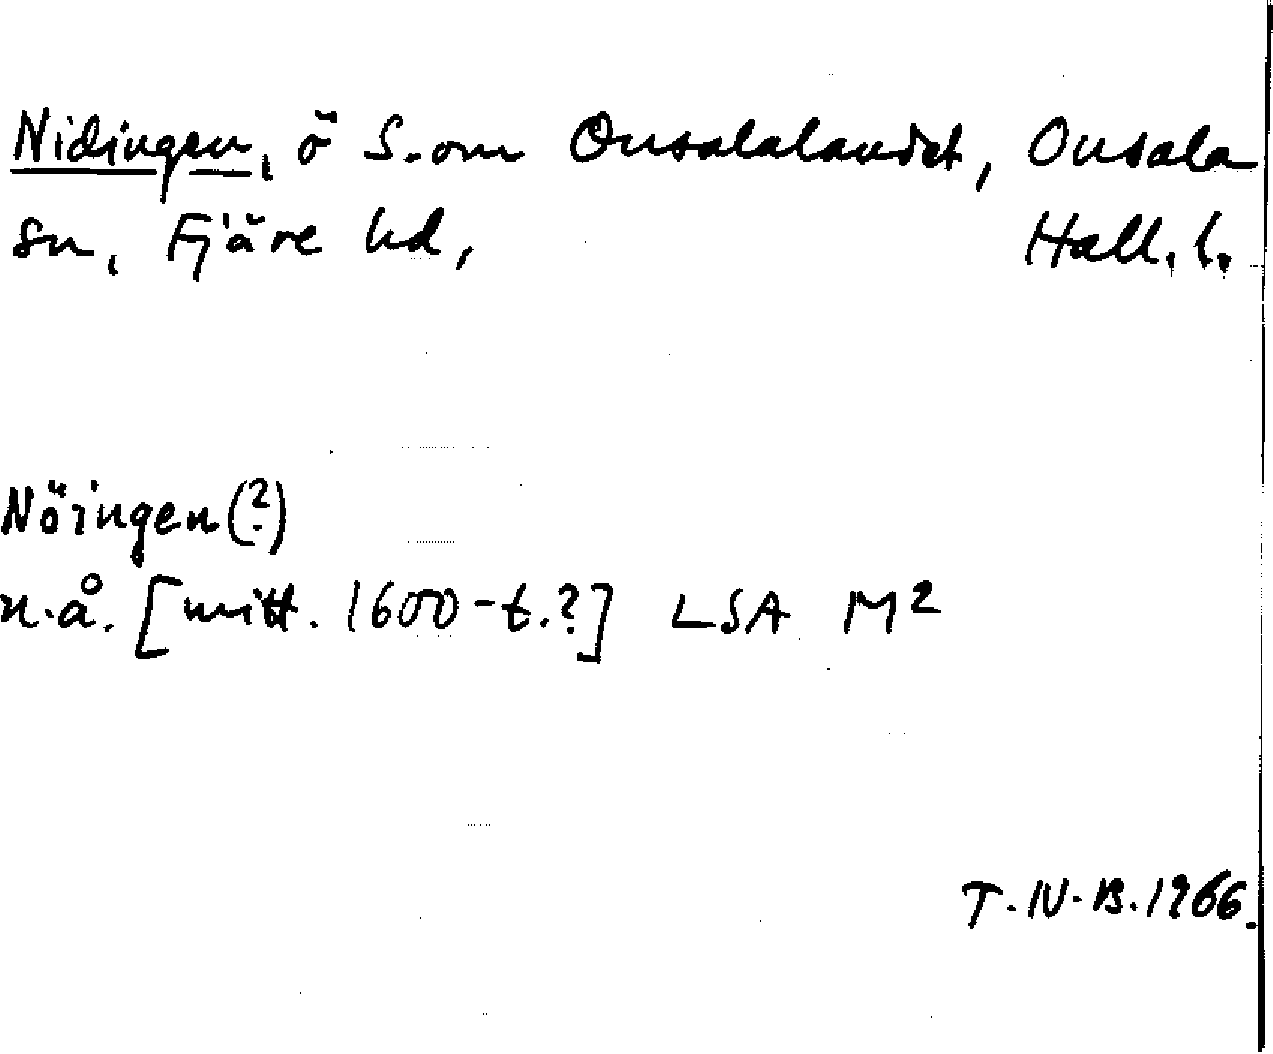 Nidingen, ö S. om Onsalalandet, Onsala
sn, Fjäre hd, Hall. l.
Nöingen(?)
n.å. [mitt. 1600-t.?] LSA M2
T. N. B. 1966.